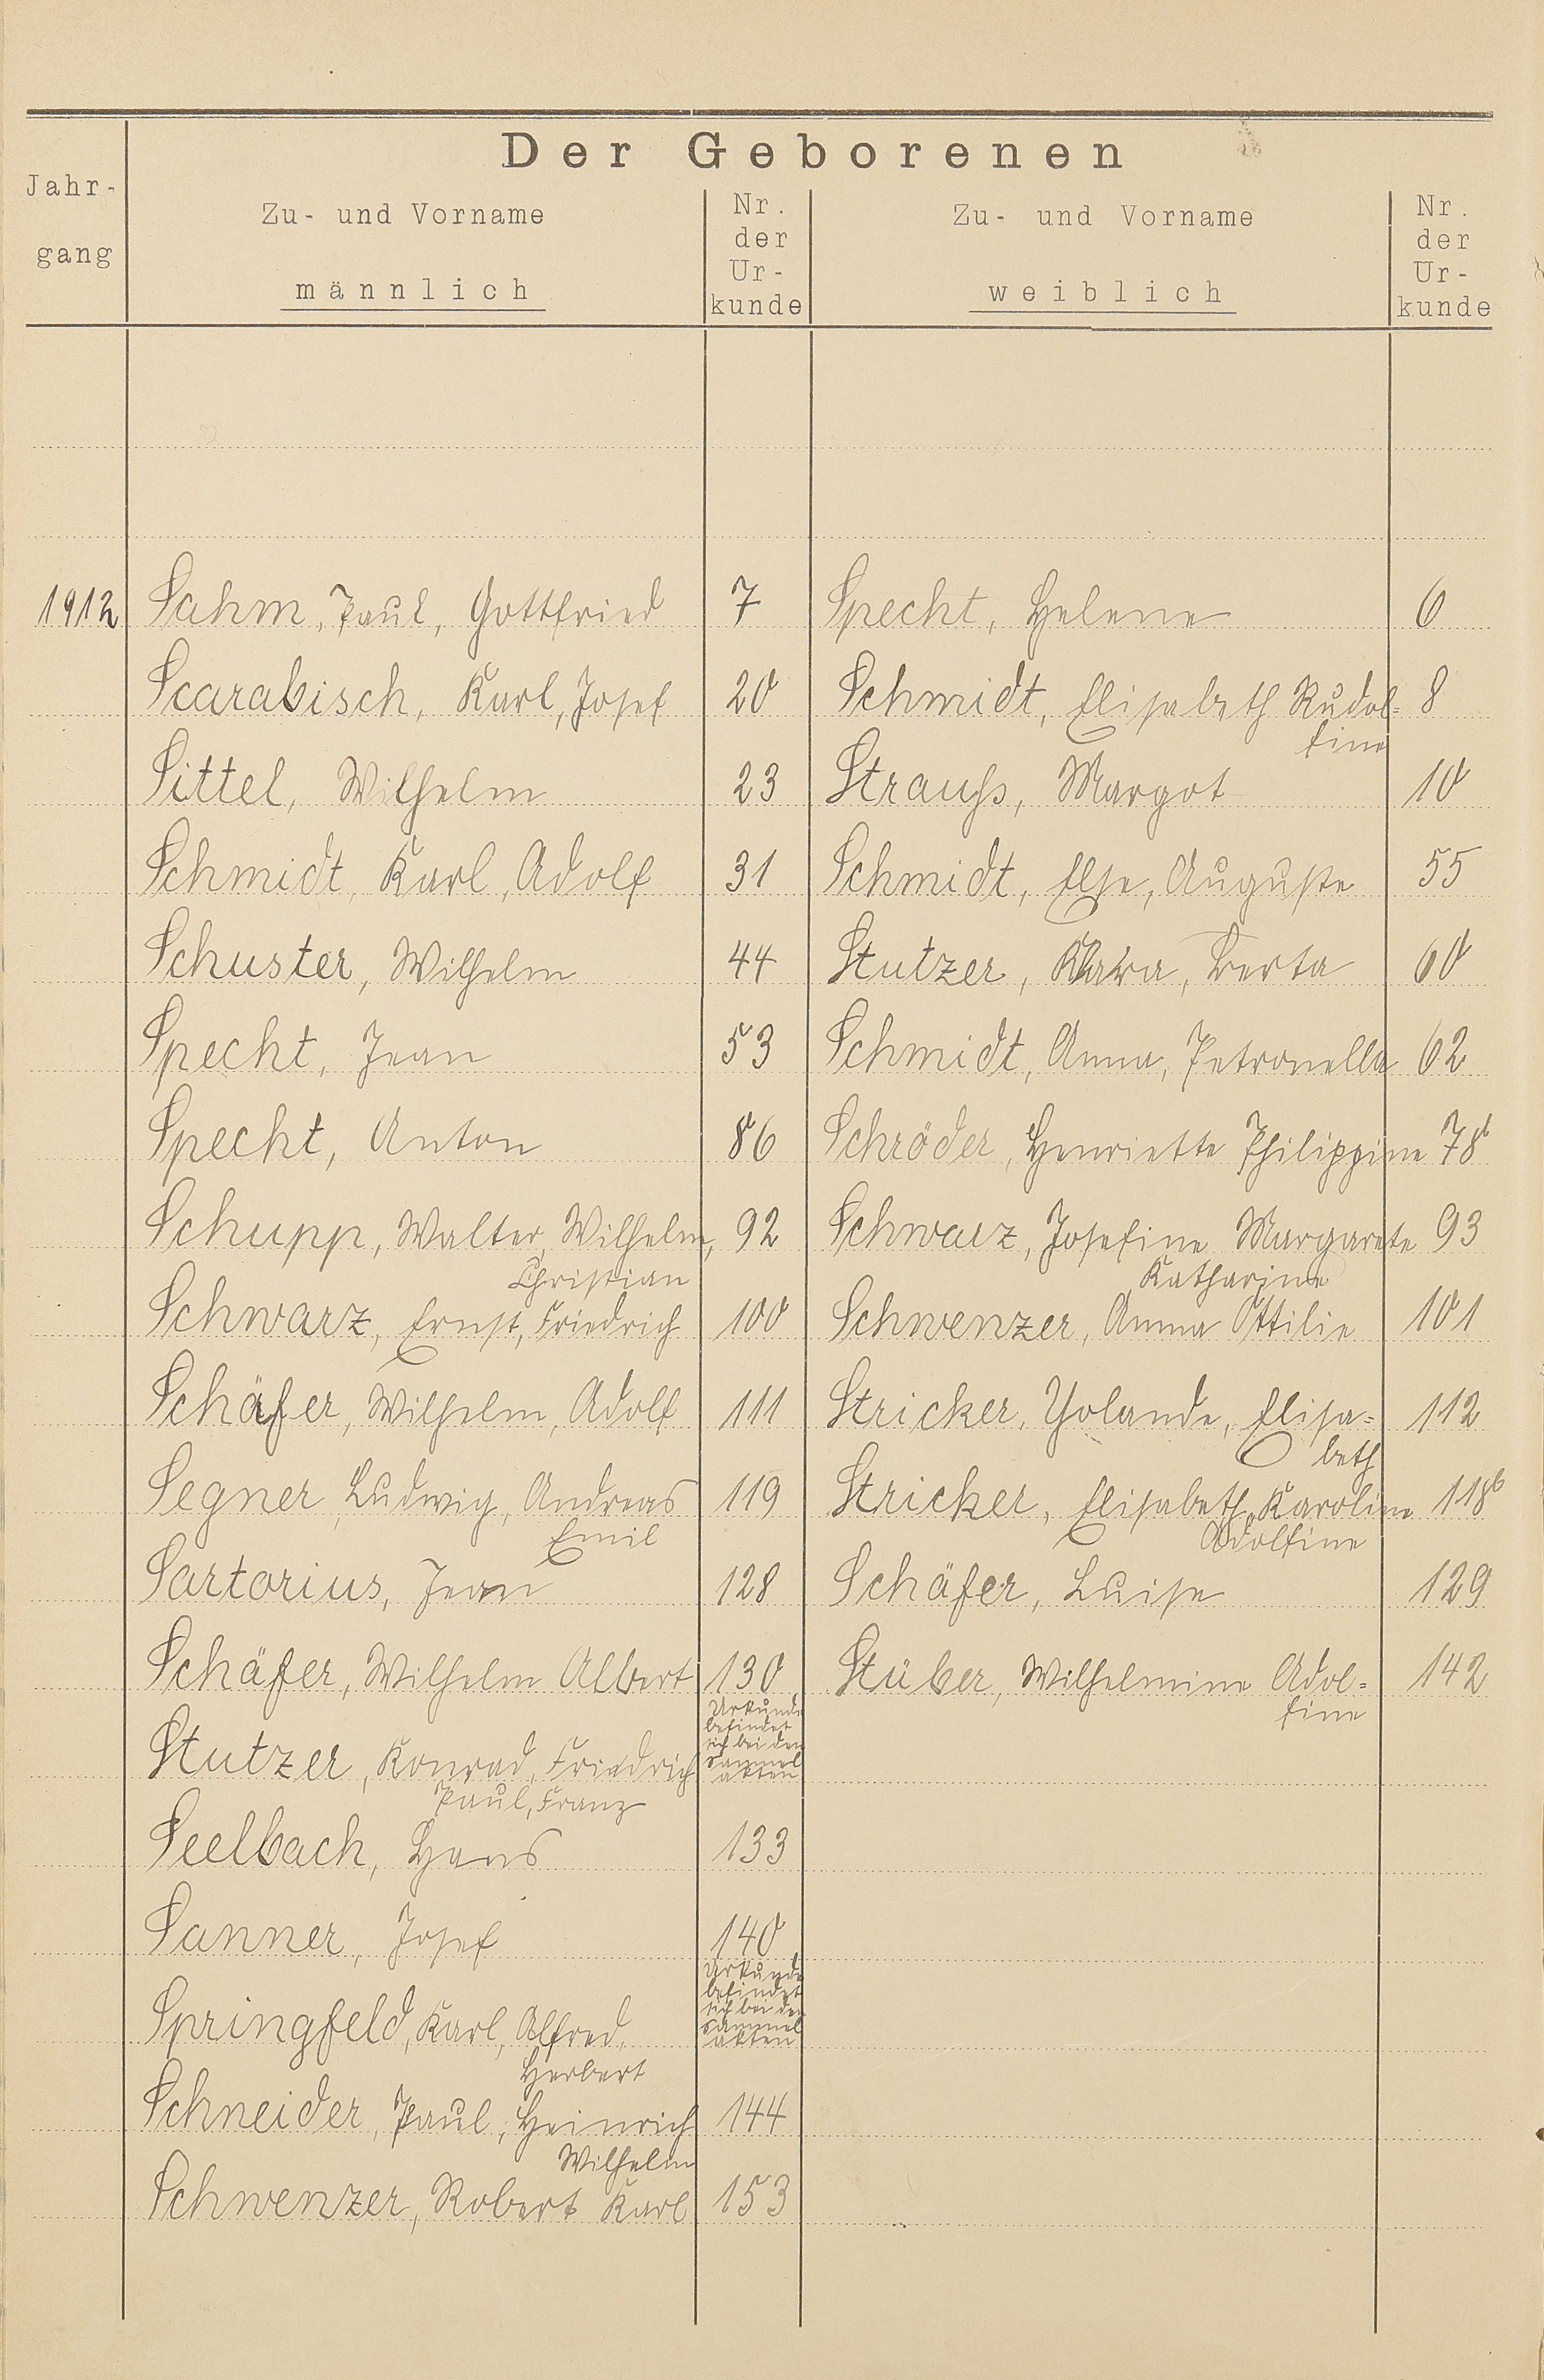 Der Geborenen
Jahr-
gang
Zu- und Vorname
männlich
Nr.
der
Ur-
kunde
Zu- und Vorname
weiblich
Nr.
der
Ur-
kunde
1912 Sahm, Paul, Gottfried 7 Specht, Helene 6
Scarabisch, Karl, Josef 20 Schmidt, Elisabeth Rudol= 8
fine
Sittel, Wilhelm 23 Strauß, Margot 10
Schmidt, Karl, Adolf 31 Schmidt, Else, Auguste 55
Schuster, Wilhelm 44 Stutzer, Klara, Berta 60
Specht, Jean 53 Schmidt, Anna, Petronella 62
Specht, Anton 86 Schröder, Henriette Philippine 78b
Schupp, Walter, Wilhelm, 92 Schwarz, Josefine Margarete 93
Christian Katharine
Schwarz, Ernst, Friedrich 100 Schwenzer, Anna Ottilie 101
Schäfer, Wilhelm, Adolf 111 Stricker, Yolande, Elisa= 112
beth
Segner, Ludwig, Andreas 119 Stricker, Elisabeth, Karoline 118b
Emil Adolfine
Sartorius, Jean 128 Schäfer, Luise 129
Schäfer, Wilhelm Albert 130 Stüber, Wilhelmine Adol= 142
fine
Stutzer, Konrad, Friedrich Urkunde
befindet
sich bei den
Sammel
akten
Paul, Franz
Seelbach, Hans 133
Sanner, Josef 140
Springfeld, Karl, Alfred, Urkunde
befindet
sich bei den
Sammel
akten
Herbert
Schneider, Paul, Heinrich 144
Wilhelm
Schwenzer, Robert Karl 153